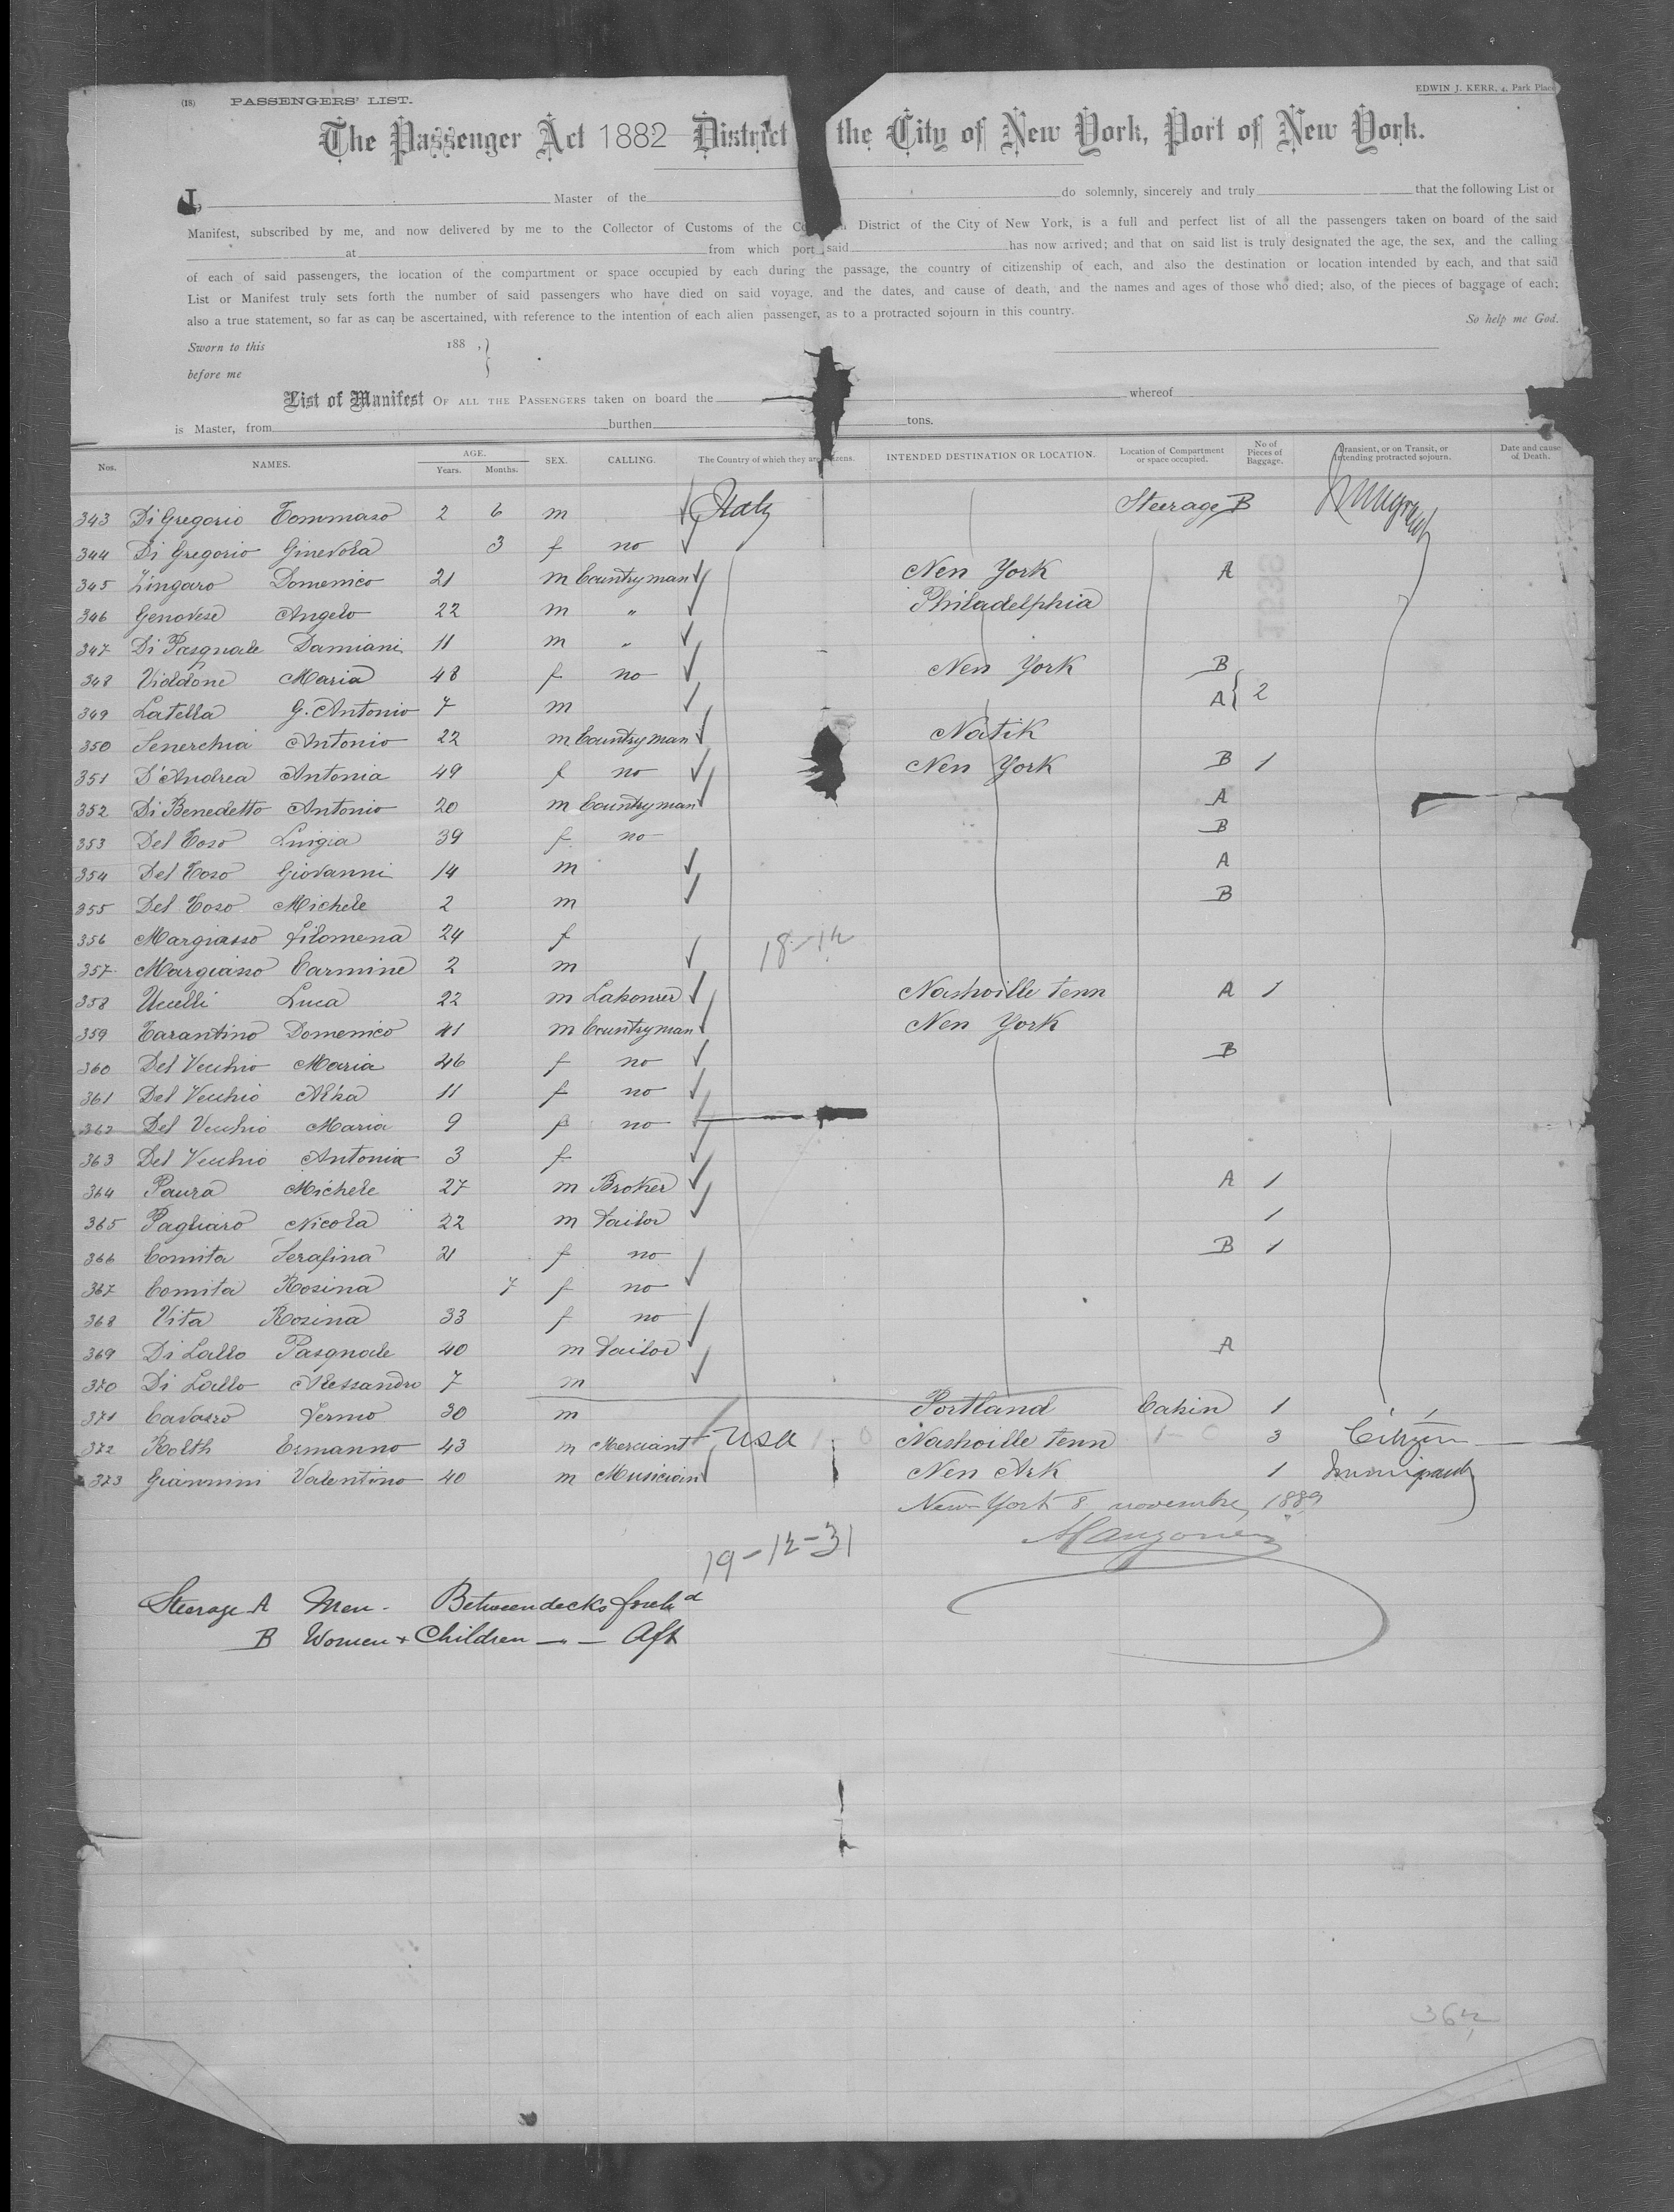 (18) PASSENGERS' LIST.
EDWIN J. KERR, 4, Park Place
The Passenger Act 1882 District the City of New York, Port of New York.
I, Master of the do solemnly, sincerely and truly that the following List or
Manifest, subscribed by me, and now delivered by me to the Collector of Customs of the District of the City of New York, is a full and perfect list of all the passengers taken on board of the said
at from which port said has now arrived; and that on said list is truly designated the age, the sex, and the calling
of each of said passengers, the location of the compartment or space occupied by each during the passage, the country of citizenship of each, and also the destination or location intended by each, and that said
List or Manifest truly sets forth the number of said passengers who have died on said voyage, and the dates, and cause of death, and the names and ages of those who died; also, of the pieces of baggage of each;
also a true statement, so far as can be ascertained, with reference to the intention of each alien passenger, as to a protracted sojourn in this country. So help me God.
Sworn to this 188 ,}
before me
List of Manifest OF ALL THE PASSENGERS taken on board the whereof
is Master, from burthen tons.
Nos. NAMES. AGE. Years. Months. SEX. CALLING. The Country of which they are INTENDED DESTINATION OR LOCATION. Location of Compartment or space occupied. No of Pieces of Baggage. Transient, or on Transit, or intending protracted sojourn. Date and cause of Death.
343 Di Gregorio Tommaso 2 6 m Italy Steerage B
344 Di Gregorio Ginevora 3 f no
345 Zingaro Domenico 21 m Countryman Nen York A
346 Genovese Angelo 22 m " Philadelphia
347 Di Pasquale Damiani 11 m "
348 Viddone Maria 48 f no Nen York B
349 Latella G. Antonio 7 m A } 2
350 Senerchia Antonio 22 m Countryman Natik
351 D'Andrea Antonia 49 f no Nen York B 1
352 Di Benedetto Antonio 20 m Countryman A
353 Del Toso Luigia 39 f no B
354 Del Toso Giovanni 14 m A
355 Del Toso Michele 2 m B
356 Margiasso Filomena 24 f
357 Margiasso Carmine 2 m
18-12
358 Ucelli Luca 22 m Labourer Nashville tenn A 1
359 Tarantino Domenico 41 m Countryman Nen York
360 Del Vecchio Maria 46 f no B
361 Del Vecchio Alba 11 f no
362 Del Vecchio Maria 9 f no
363 Del Vecchio Antonia 3 f
364 Paura Michele 27 m Broker A 1
365 Pagliaro Nicola 22 m Tailor 1
366 Comita Serafina 21 f no B 1
367 Comita Rosina 7 f no
368 Vita Rosina 33 f no
369 Di Lallo Pasquale 40 m Tailor A
370 Di Lallo Alessandro 7 m
371 Cavasro Fermo 30 m Portland Cabin 1
372 Rolth Ermanno 43 m Merciant USA Nashville tenn 3 Citizen
373 Giannini Valentino 40 m Musician Nen Ark 1 Immigrant
New-York 8 novembre 1889
19-12-31
Steerage A Men - Betweendecks forehd
B Women + Children — " — Aft